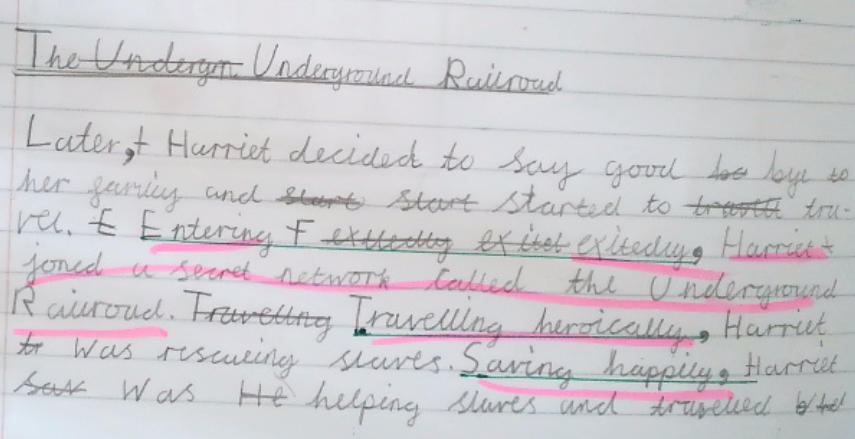 The Undergrn Underground Railroad
Later, Harriet decided to say good bye to
her family and start start started to tra-
vel. E Entering exitedly, Harriet
joned a secret network called the Underground
Railroad. Travelling Travelling heroically, Harriet
was rescueing slaves. Saving happily, Harriet
Sav was He helping slaves and travelled